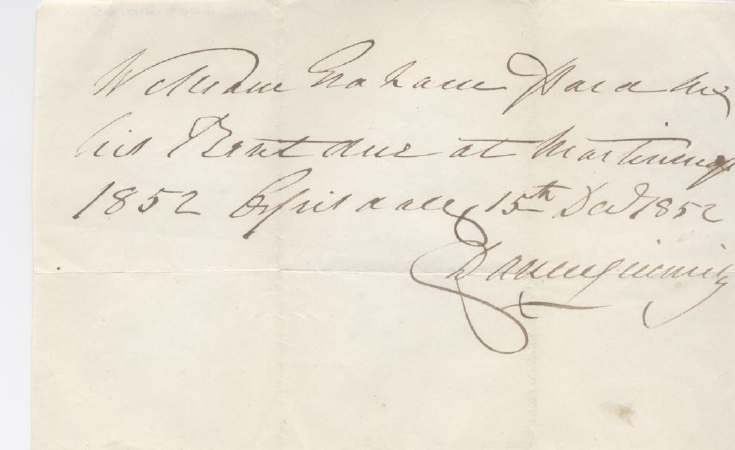 William Graham Paid me
his Rent due at Martinmas
1852 15th Decr 1852